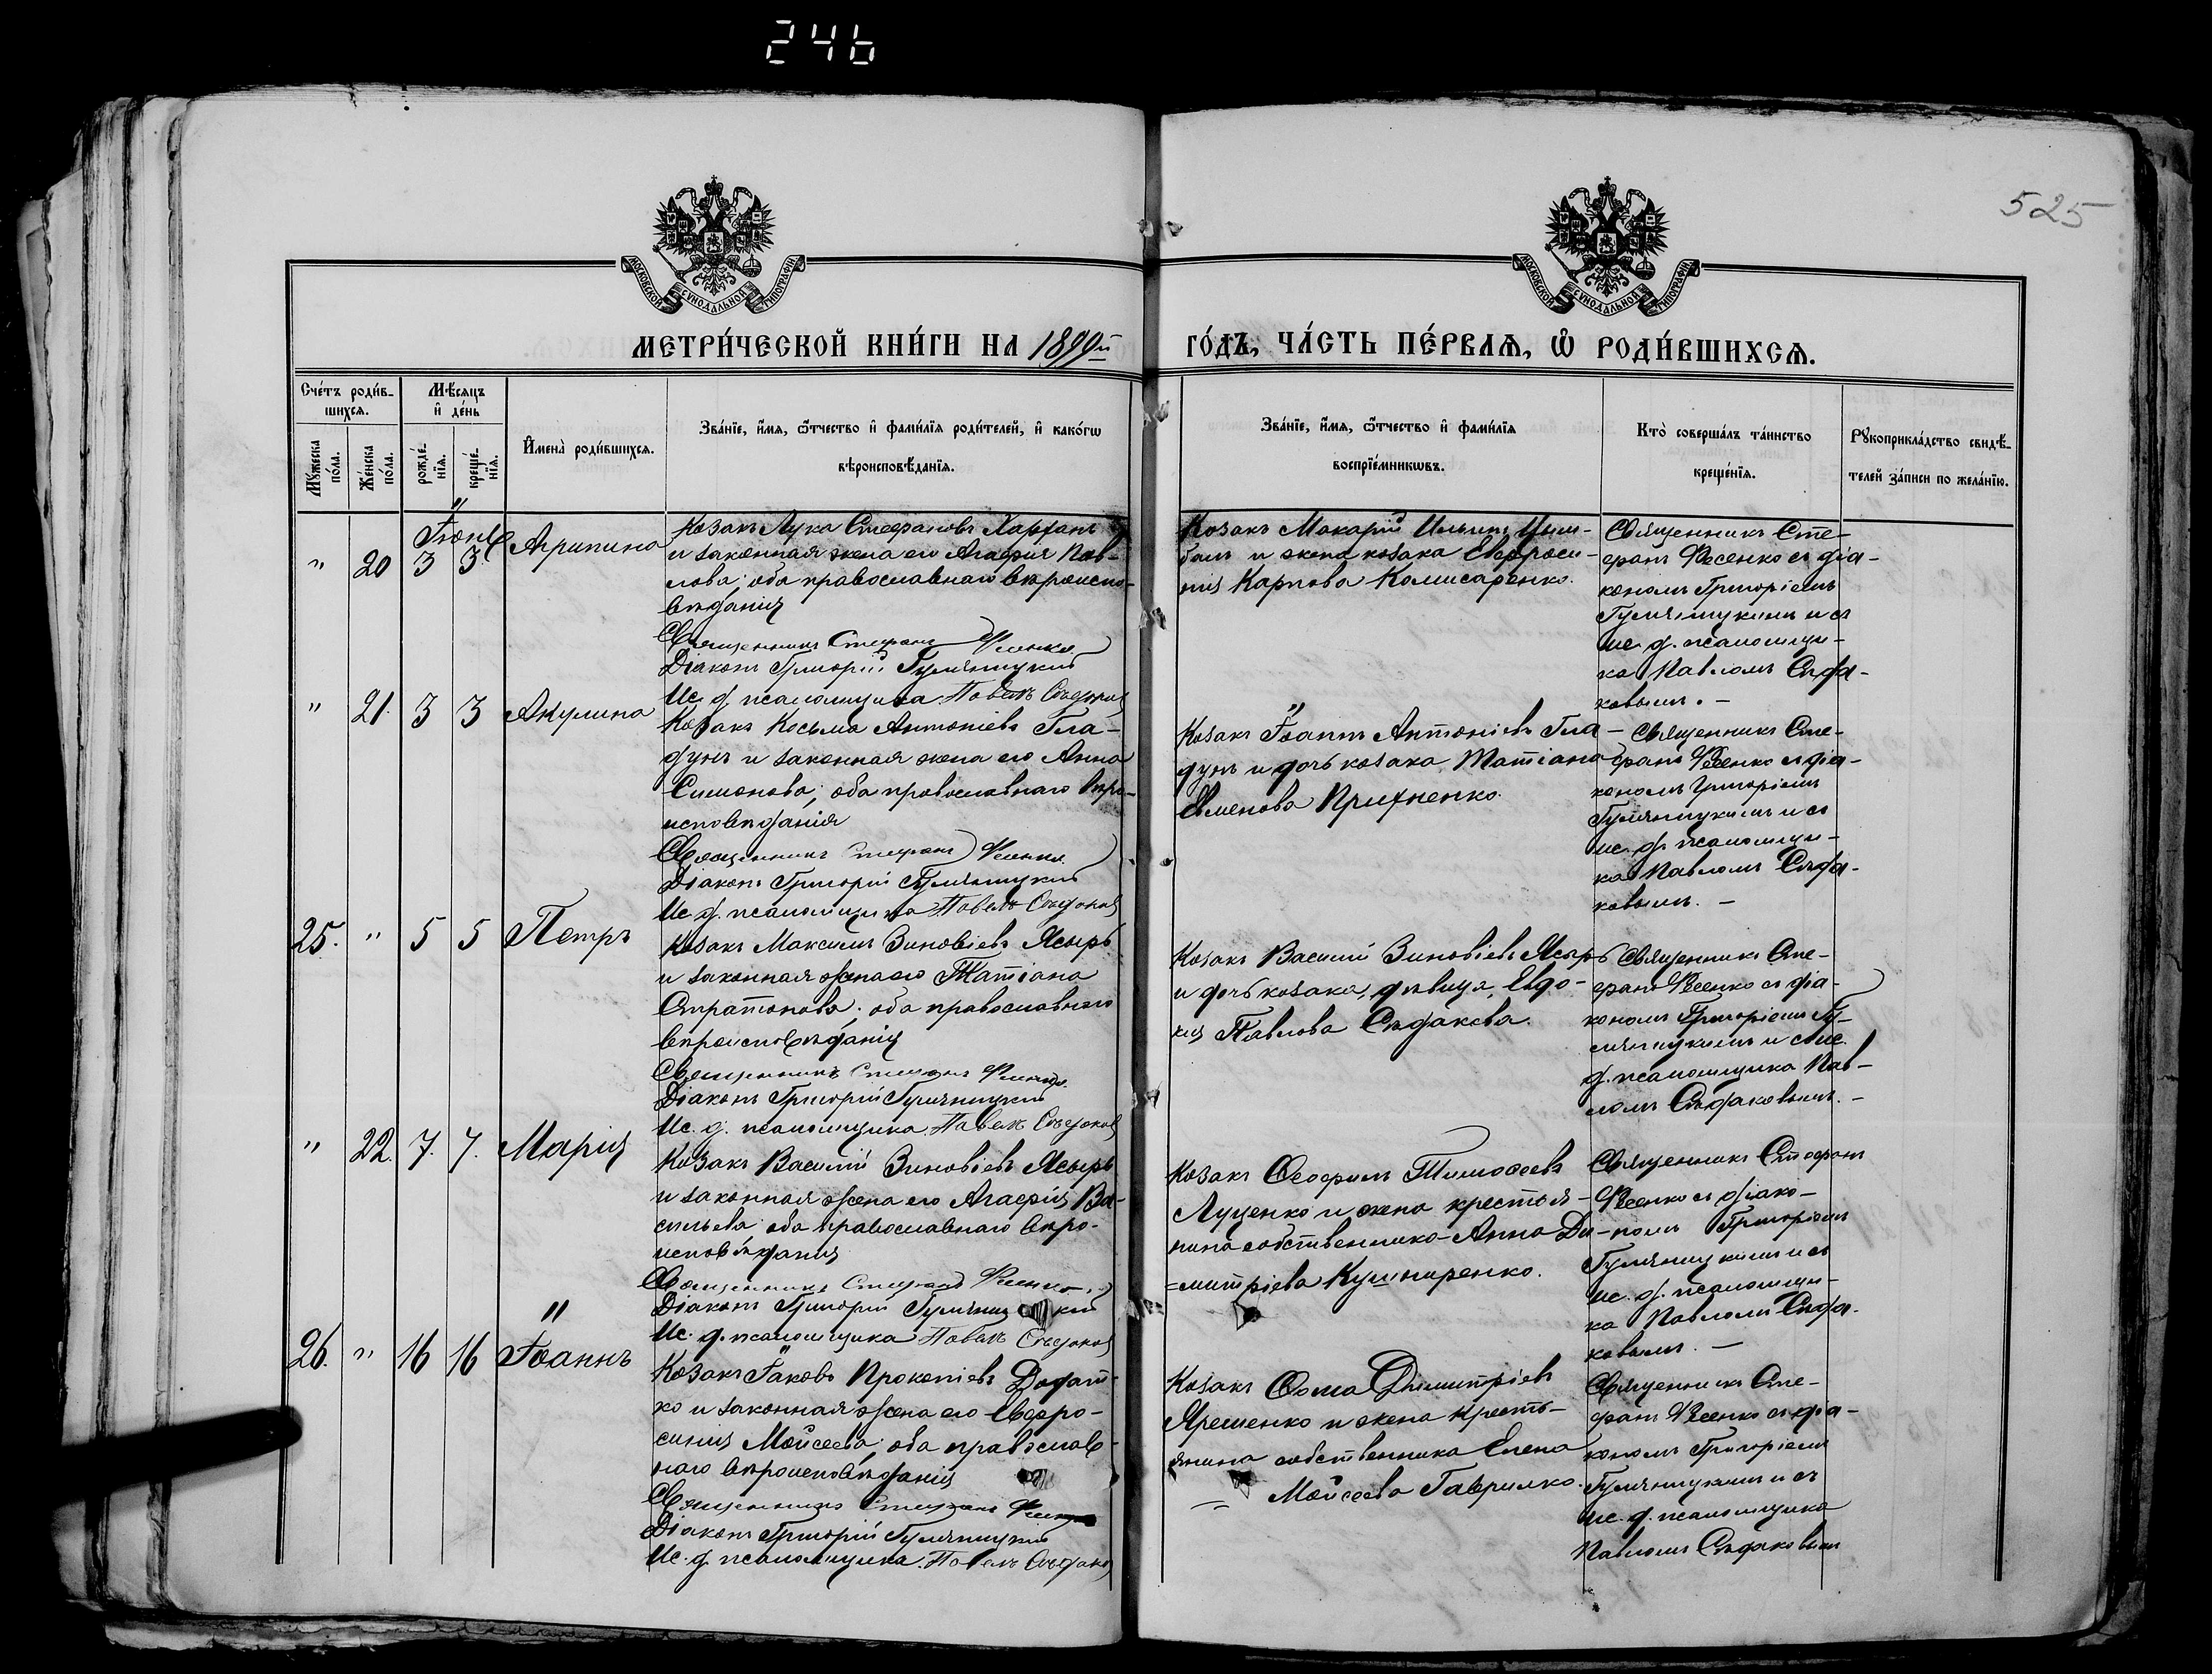 246
525
МОСКОВСКОЙ СѴНОДАЛЬНОЙ ТИПОГРАФІИ
МОСКОВСКОЙ СѴНОДАЛЬНОЙ ТИПОГРАФІИ
МЕТРИ́ЧЕСКОЙ КНИ́ГИ НА 1899й ГО́ДЪ, ЧА́СТЬ ПЕ́РВАѦ, Ѡ РОДИ́ВШИХСѦ.
Счéтъ роди́в-
шихсѧ.
Мѣсѧцъ
и҆ де́нь
Мꙋ́жеска
по́ла.
Же́нска
по́ла.
рожде́-
нїѧ.
креще́-
нїѧ.
И҆мена̀ роди́вшихсѧ.
Зва́нїе, и҆́мѧ, ѻ҆́тчество и҆ фами́лїѧ роди́телей, и҆ како́гѡ
вѣроисповѣ́данїѧ.
Зва́нїе, и҆́мѧ, ѻ҆́тчество и҆ фами́лїѧ
воспрїе́мникѡвъ.
Кто̀ соверша́лъ та́инство
креще́нїѧ.
Рꙋкоприкла́дство свидѣ́-
телей за́писи по жела́нїю.
Іюнь
" 20 3 3 Агрипина
Козакъ Лука Стефановъ Харханъ
и законная жена его Агафія Пав-
лова; оба православнаго вѣроиспо-
вѣданія
Священникъ Стефанъ Фесенко
Діаконъ Григорій Гуляницкій
Ис. д. псаломщика Павелъ Сѣдаковъ
Козакъ Макарій Ильинъ Цым-
балъ и жена козака Евфроси-
нія Карпова Комисаренко.
Священникъ Сте-
фанъ Фесенко съ діа-
кономъ Григоріемъ
Гуляницкимъ и съ
ис. д. псаломщи-
ка Павломъ Сѣда-
ковымъ. –
" 21. 3 3 Акулина
Козакъ Косьма Антоніевъ Гла-
дунъ и законная жена его Анна
Симонова; оба православнаго вѣро-
исповѣданія
Священникъ Стефанъ Фесенко
Діаконъ Григорій Гуляницкій
Ис. д. псаломщика Павелъ Сѣдаковъ
Козакъ Іоаннъ Антоніевъ Гла-
дунъ и дочь козака Татіана
Евменова Прихненко.
Священникъ Сте-
фанъ Фесенко съ діа-
кономъ Григоріемъ
Гуляницкимъ и съ
ис. д. псаломщи-
ка Павломъ Сѣда-
ковымъ. –
25. " 5 5 Петръ
Козакъ Максимъ Зиновіевъ Ясырь
и законная жена его Татіана
Стратонова; оба православнаго
вѣроисповѣданія
Священникъ Стефанъ Фесенко
Діаконъ Григорій Гуляницкій
Ис. д. псаломщика Павелъ Сѣдаковъ
Козакъ Василій Зиновіевъ Ясырь
и дочь козака, дѣвица, Евдо-
кія Павлова Сѣдакова.
Священникъ Сте-
фанъ Фесенко съ діа-
кономъ Григоріемъ Гу-
ляницкимъ и съ ис.
д. псаломщика Пав-
ломъ Сѣдаковымъ. –
" 22. 7. 7. Марія
Козакъ Василій Зиновіевъ Ясырь
и законная жена его Агафія Ва-
сильева; оба православнаго вѣро-
исповѣданія
Священникъ Стефанъ Фесенко
Діаконъ Григорій Гуляницкій
Ис. д. псаломщика Павелъ Сѣдаковъ
Козакъ Ѳеофилъ Тимоѳеевъ
Луценко и жена крестья-
нина собственника Анна Ди-
=митріева Кушниренко.
Священникъ Стефанъ
Фесенко съ діако-
номъ Григоріемъ
Гуляницкимъ и съ
ис. д. псаломщи-
ка Павломъ Сѣда-
ковымъ. –
26. " 16 16 Іоаннъ
Козакъ Іаковъ Прокопіевъ Додат-
ко и законная жена его Евфро-
синія Моисеева; оба православ-
наго вѣроисповѣданія
Священникъ Стефанъ Фесенко
Діаконъ Григорій Гуляницкій
Ис. д. псаломщика Павелъ Сѣдаковъ
Козакъ Ѳома Димитріевъ
Ярешенко и жена кресть-
янина собственника Елена
Моисеева Гаврилко.
Священникъ Сте-
фанъ Фесенко съ діа-
кономъ Григоріемъ
Гуляницкимъ и съ
ис. д. псаломщика
Павломъ Сѣдаковым